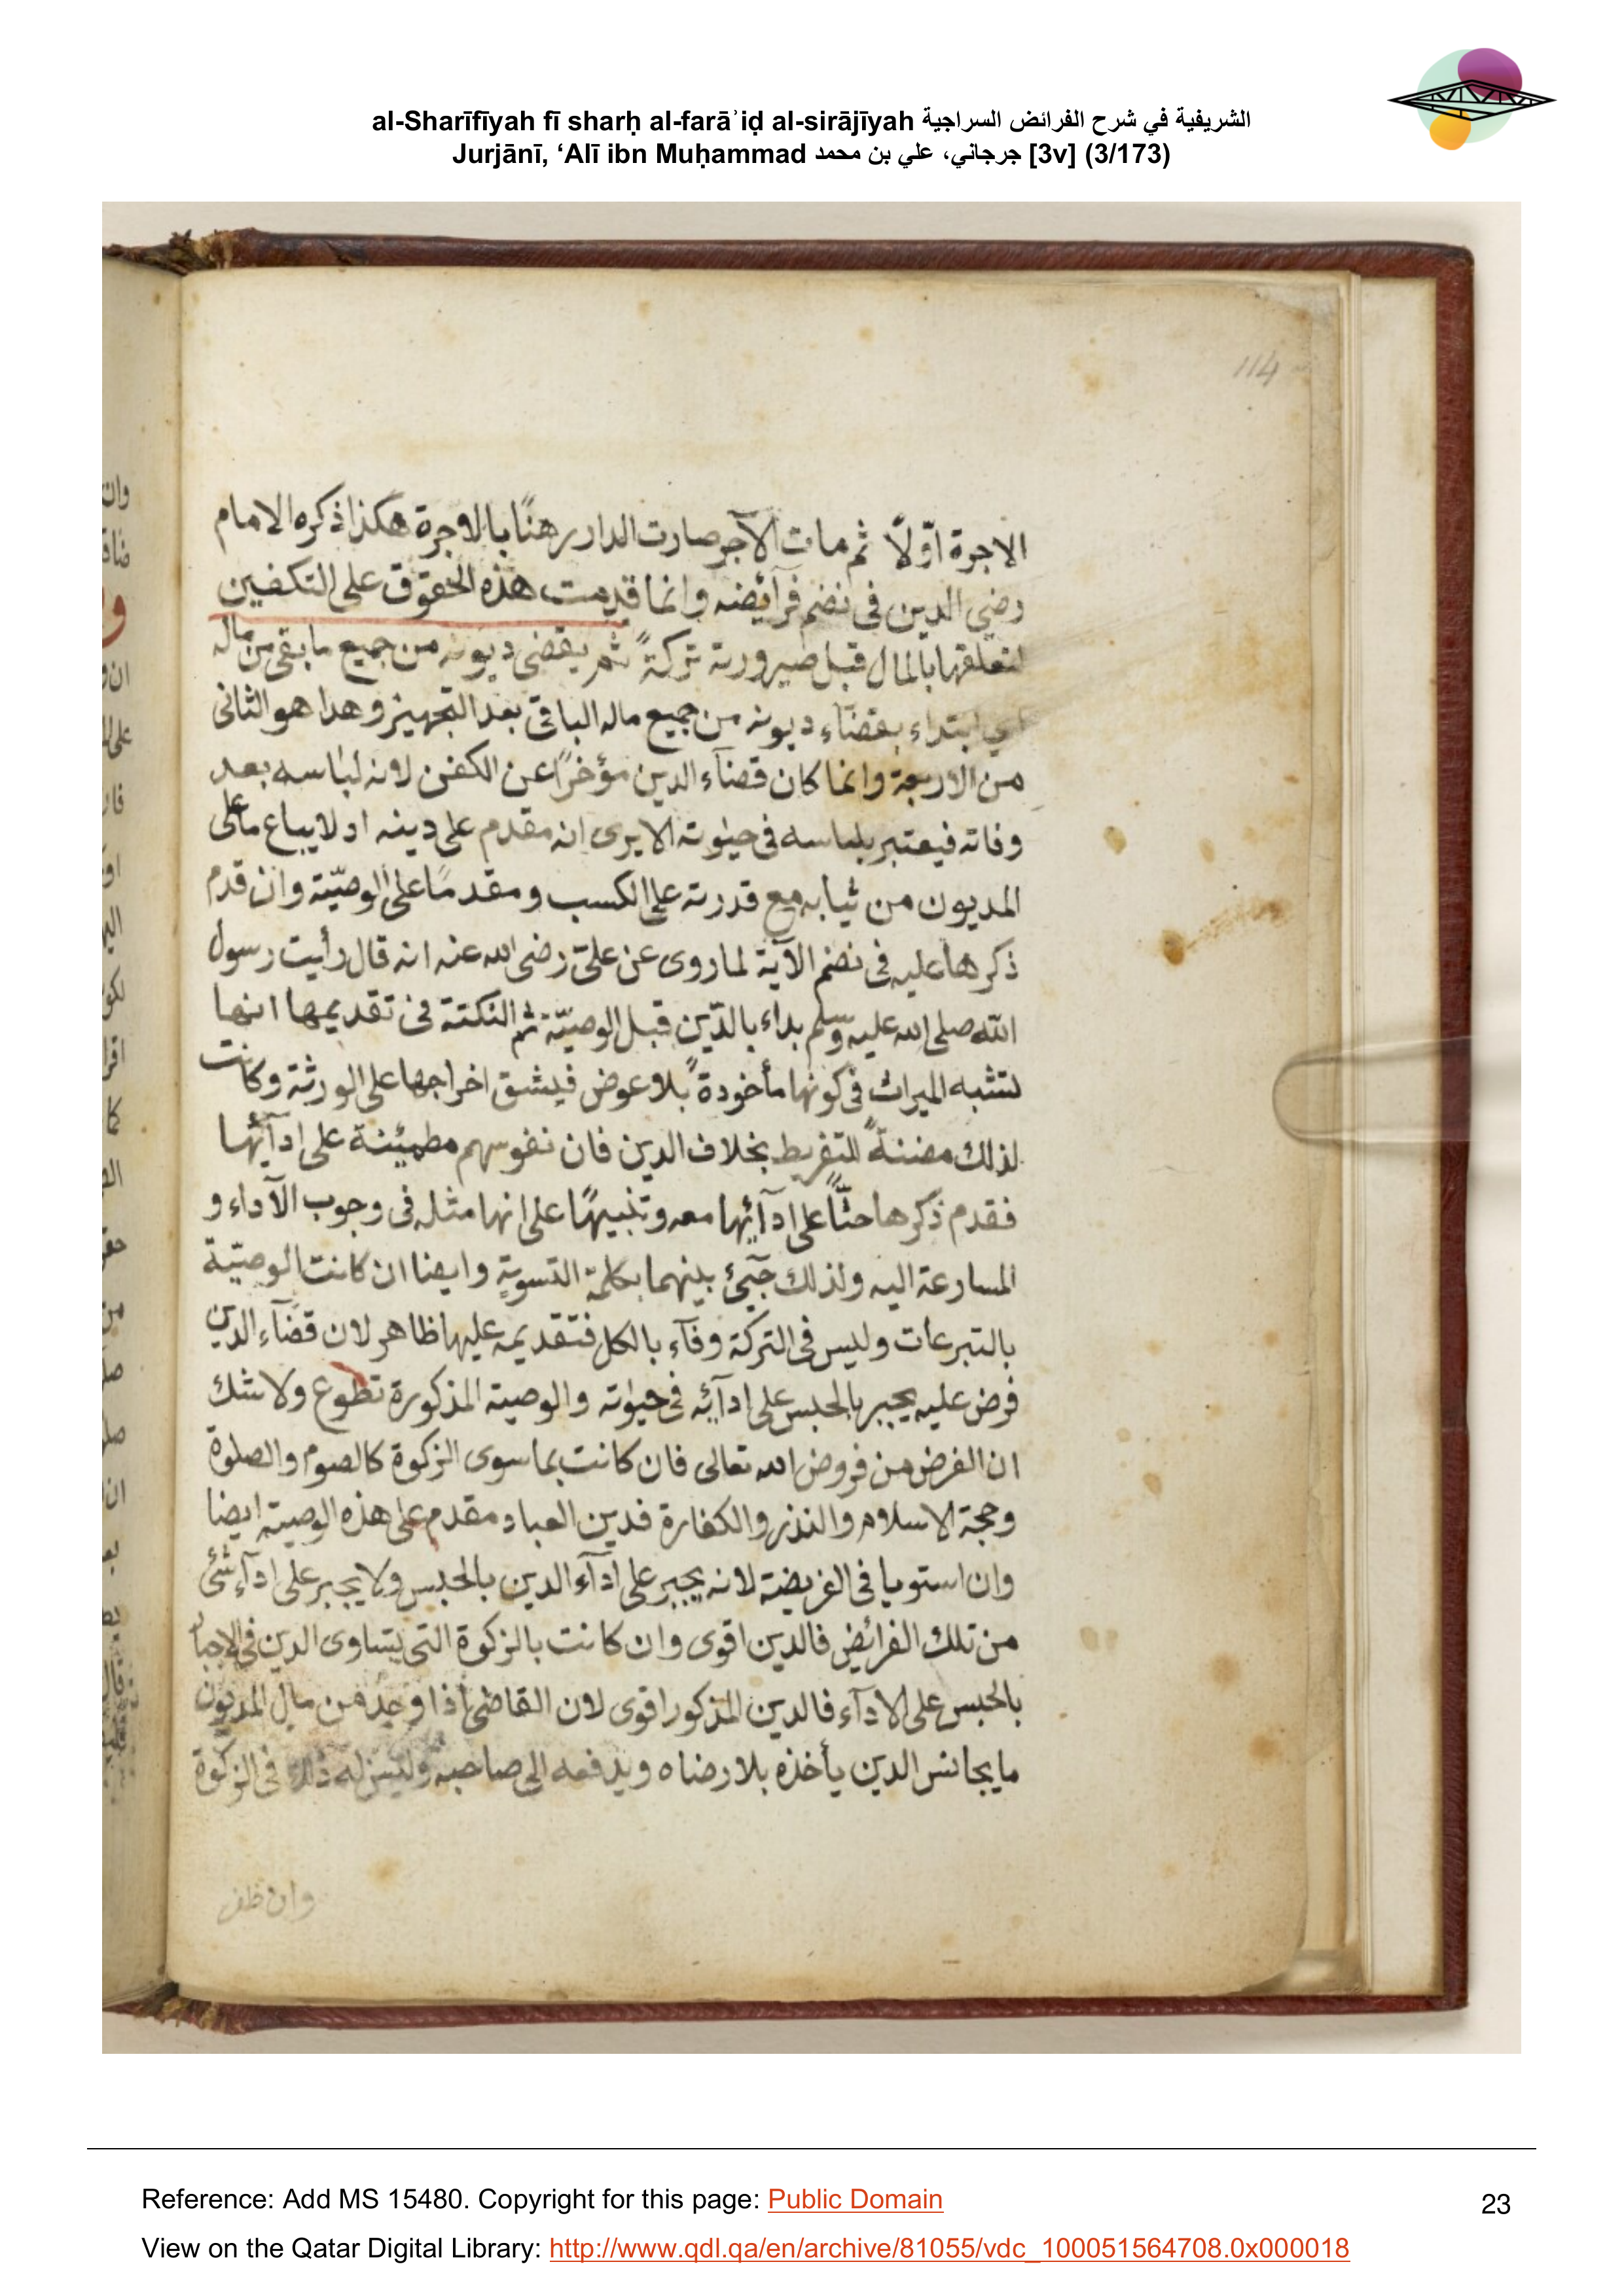 al-Sharīfīyah fī sharḥ al-farāʾiḍ al-sirājīyah الشريفية في شرح الفرائض السراجية
Jurjānī, ‘Alī ibn Muḥammad جرجاني، علي بن محمد [3v] (3/173)
114
الاجرة اوّلاً ثم مات الآجر صارت الدار رهنًا بالاجرة هكذا ذكره الامام
رضي الدين فى نضم فرآئضه وانما قدمت هذه الحقوق على التكفين
لتعلقها بالمال قبل صيرورته تركةً ثم يقضى ديونه من جميع ما بقى من ماله
اي ابتداء بقضآء ديونه من جميع ماله الباقى بعد التجهيز وهذا هو الثانى
من الاربعة وانما كان قضآء الدين مؤخرًا عن الكفن لانه لباسه بعد
وفاته فيعتبر بلباسه فى حيٰوته الا يرى انه مقدم على دينه اد لا يباع ما على
المديون من ثيابه مع قدرته على الكسب ومقدمًا على الوصيّة وان قدم
ذكرها عليه فى نضم الآية لما روى عن علىّ رضى الله عنه انه قال رأيت رسول
الله صلى الله عليه وسلم بداء بالدّين قبل الوصيّة ثم النكتة فى تقديمها انها
تشبه الميراث فى كونها مأخودةً بلا عوض فيشق اخراجها على الورثة وكانت
لذلك مضنةً للتفريط بخلاف الدين فان نفوسهم مطمئنة على ادآئها
فقدم ذكرها حثًّا على ادآئها معه وتنبيهًا على انها مثله فى وجوب الآداء و
المسارعة اليه ولذلك جيئ بينهما بكلمة التسوية وايضا ان كانت الوصيّة
بالتبرعات وليس فى التركة وفآء بالكل فتقديمه عليها ظاهر لان قضآء الدين
فرض عليه يجبر بالحبس على ادآئه فى حيوٰته والوصية المذكورة تطوع ولا شك
ان الفرض من فروض الله تعالى فان كانت بما سوى الزكوة كالصوم والصلوة
وحجة الاسلام والنذر والكفارة فدين العباد مقدم على هذه الوصية ايضا
وان استويا فى الفريضة لانه يجبر على ادآء الدين بالحبس ولا يجبر على ادآء شئ
من تلك الفرائض فالدين اقوى وان كانت بالزكوة التى يتساوى الدين فى الاجبار
بالحبس على الادآء فالدين المذكور اقوى لان القاضى اذا وجد من مال المديون
ما يجانس الدين يأخذه بلا رضاه ويدفعه الى صاحبه وليس له ذلك فى الزكوة
وان ظفر
Reference: Add MS 15480. Copyright for this page: Public Domain
23
View on the Qatar Digital Library: http://www.qdl.qa/en/archive/81055/vdc_100051564708.0x000018